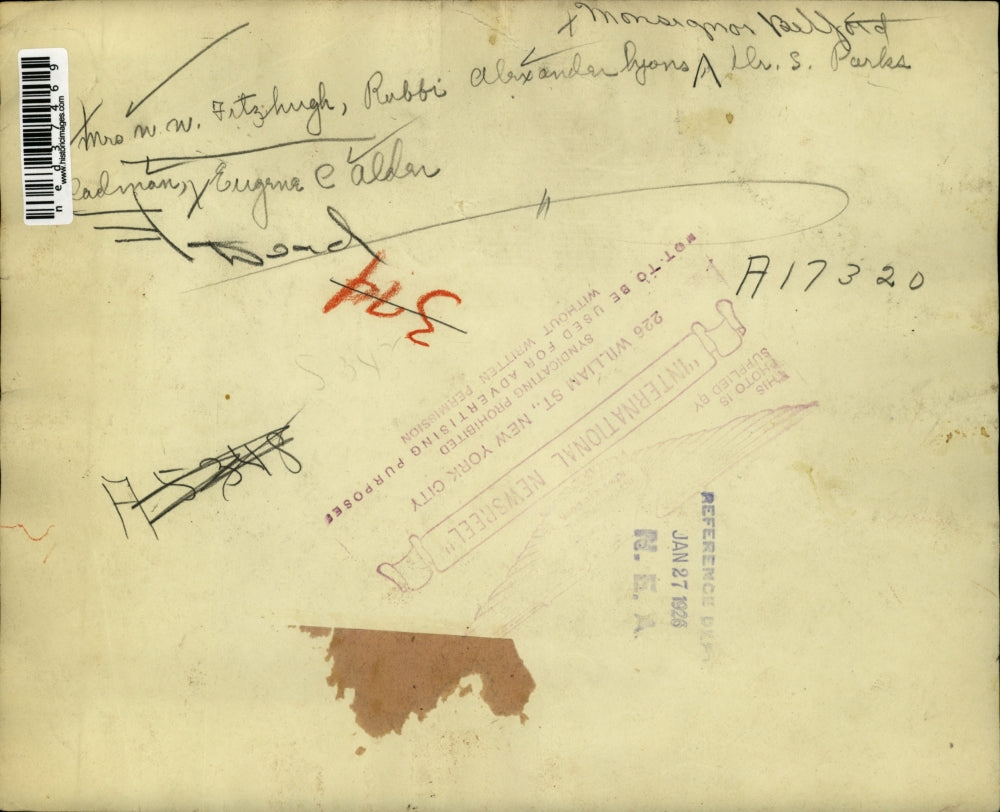 x Monsignor Belford
Mrs W. W. Fitzhugh, Rabbi Alexander Lyons ∧ Dr. S. Parks
Cadman, Eugene C Alder
374
A17320
A 5348
NOT TO BE USED FOR ADVERTISING PURPOSES
SYNDICATING PROHIBITED
WITHOUT WRITTEN PERMISSION
226 WILLIAM ST., NEW YORK CITY
"INTERNATIONAL NEWSREEL"
THIS
PHOTO IS
SUPPLIED BY
REFERENCE DEPT
JAN 27 1926
N. E. A.
ned37469
www.historicimages.com